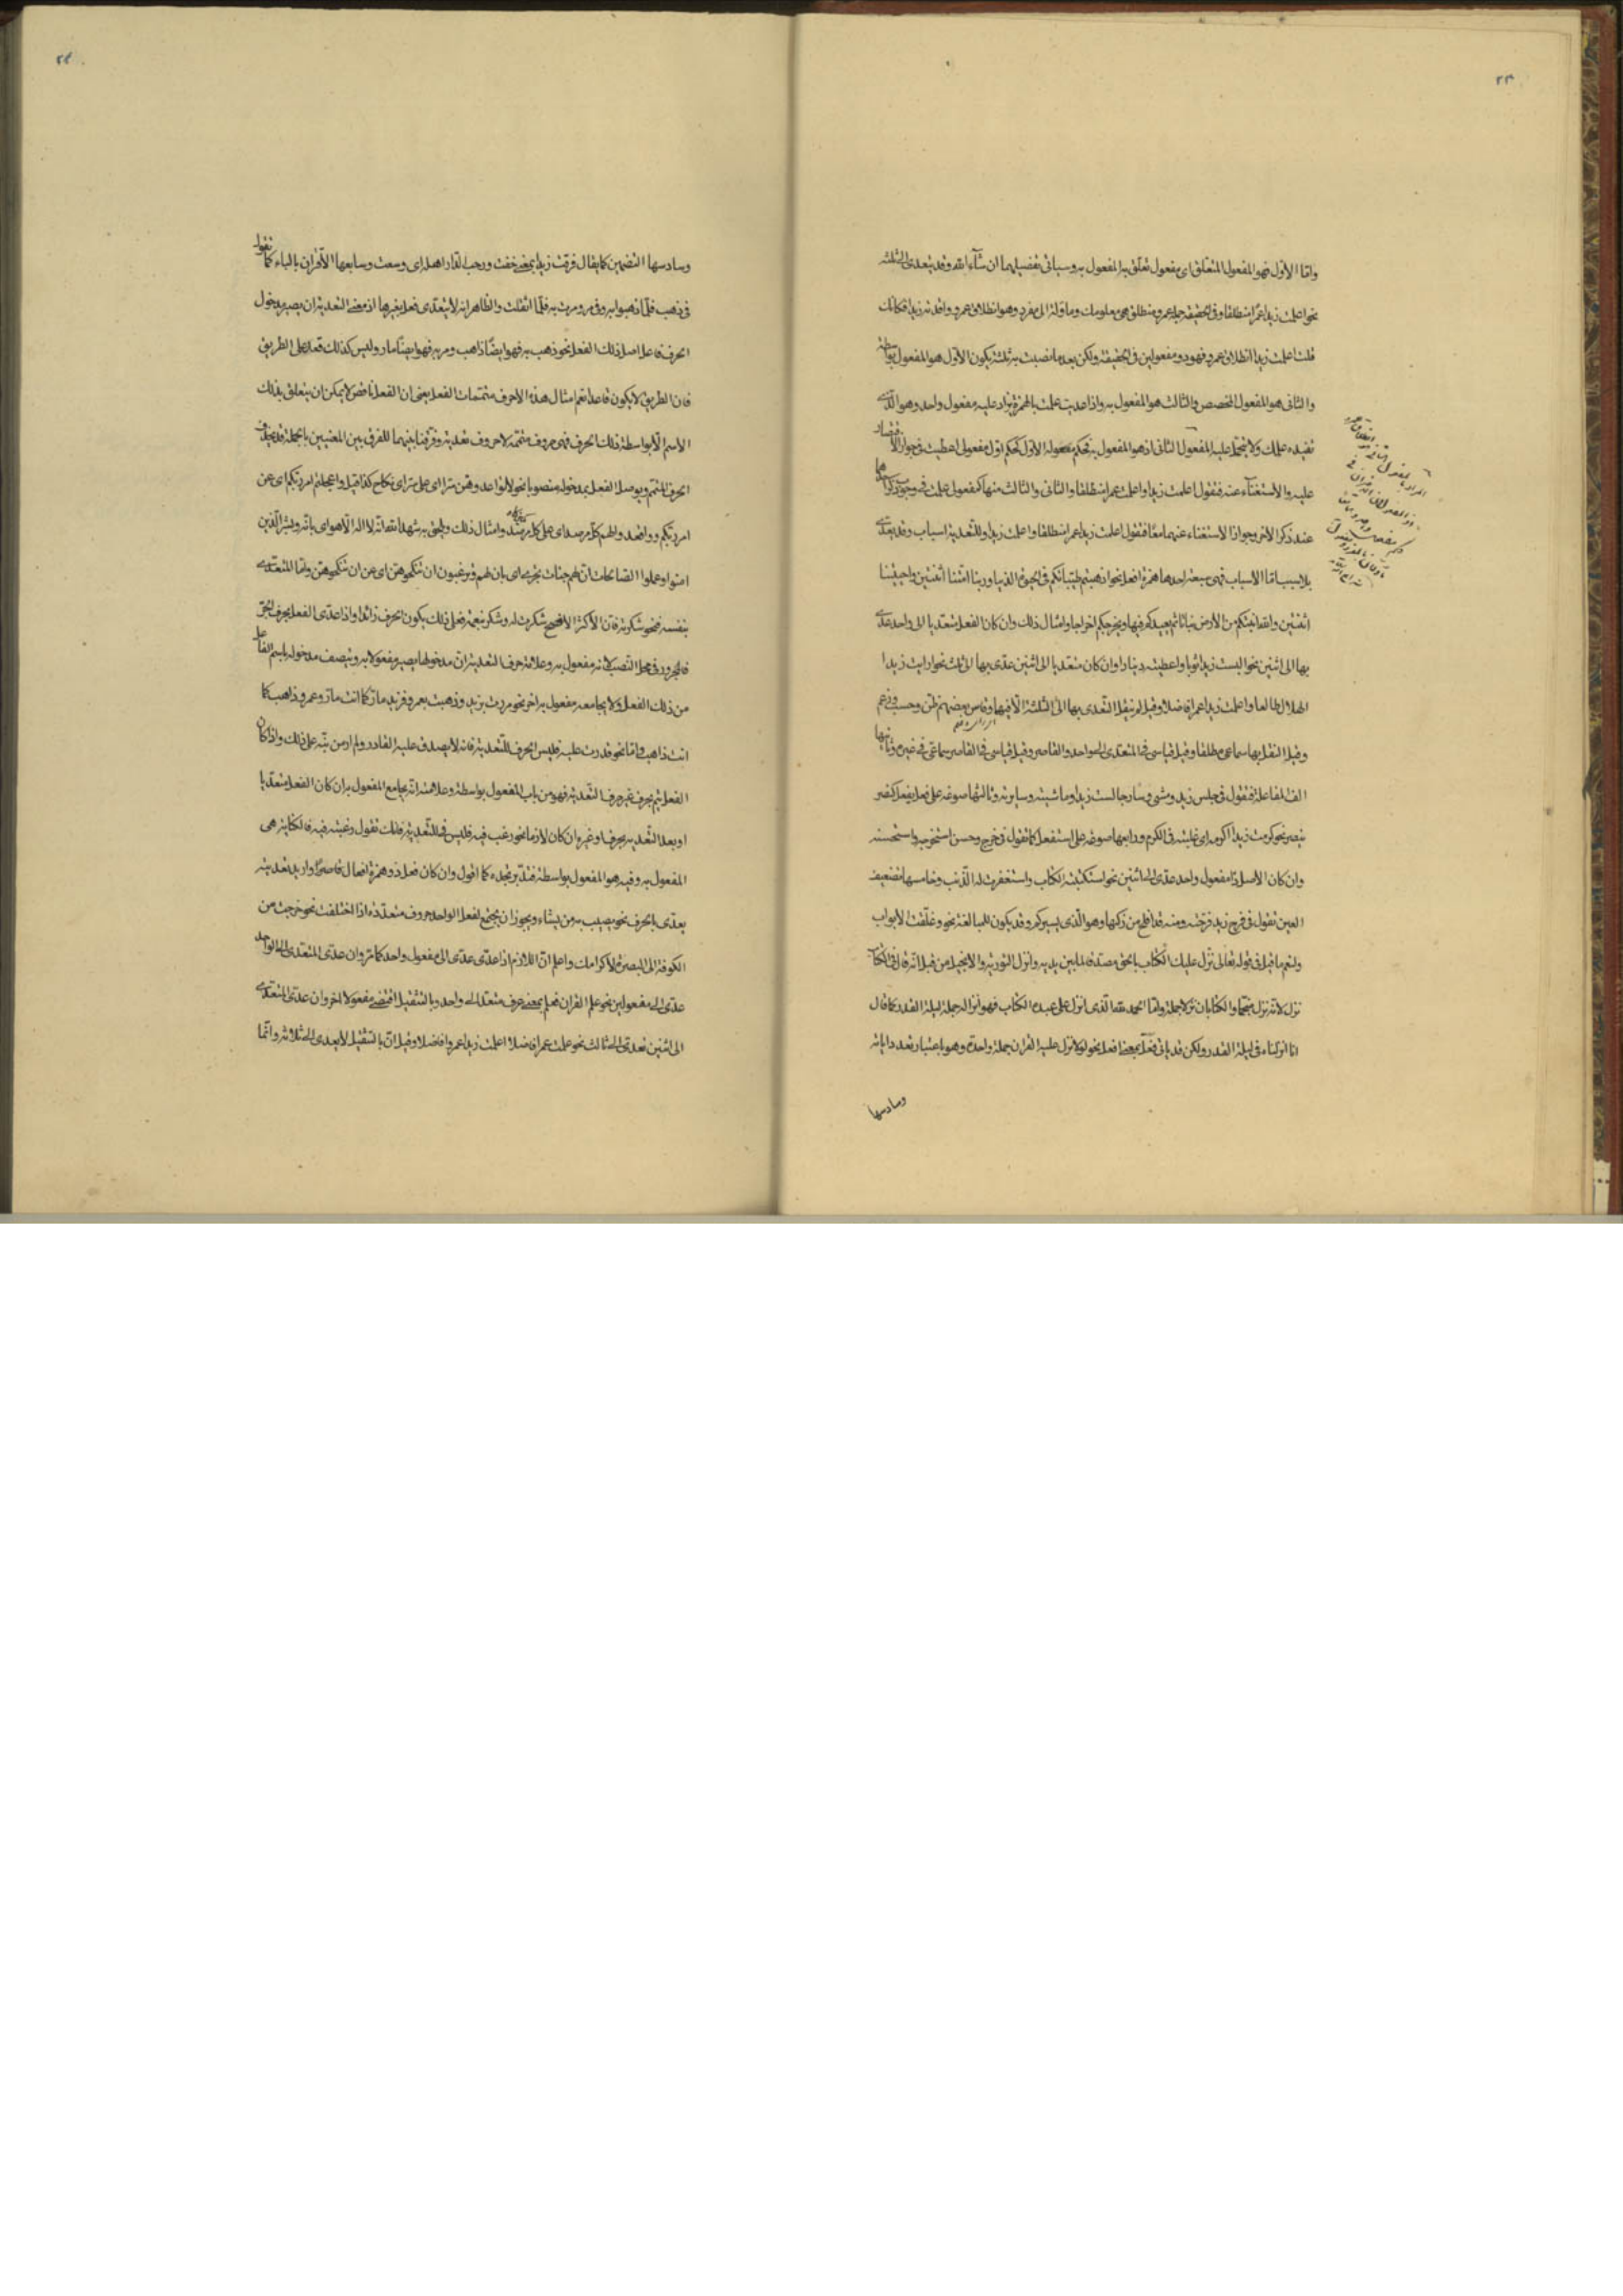 ٢٣
واما الاول فهو المفعول المتعلق اى مفعول تعلق به المفعول به وسيأتى تفصيلهما ان شآء الله وقد يتعدى الى الثلثة
نحو اعلمت زيدا عمرا منطلقا وفى الحقيقة جملة عمرو منطلق هى معلومك وماولة الى مفرد وهو انطلاق عمرو وافدته زيدا فكانك
قلت اعلمت زيدا انطلاق عمرو فهو ذو مفعولين فى الحقيقة ولكن بعد ما نصبت به ثلثة يكون الاول هو المفعول بواسطة
والثانى هو المفعول المخصص والثالث هو المفعول به واذا عديت علمت بالهمزة يزاد عليه مفعول واحد وهو الذى
تفيده علمك ولا يتحمل عليه المفعول الثانى اذ هو المفعول به فحكم مفعوله الاول كحكم اول مفعولى اعطيت فى جواز الاقتصار
عليه والاستغنآء عنه فتقول اعلمت زيدا واعلمت عمرا منطلقا والثانى والثالث منها كمفعولى علمت فى وجوب ذكر احدهما
عند ذكر الاخر وجواز الاستغناء عنهما معا فتقول اعلمت زيدا عمرا منطلقا واعلمت زيدا وللتعدية اسباب وقد يعدى
بلا سبب اما الاسباب فهى سبعة احدها همزة افعل نحو اذهبتم طيباتكم فى الحيوة الدنيا وربنا امتنا اثنتين واحييتنا
اثنتين والله انبتكم من الارض نباتا ثم يعيدكم فيها ويخرجكم اخراجا وامثال ذلك وان كان الفعل متعديا الى واحد عدى
بها الى اثنين نحو البست زيدا ثوبا واعطيته دينارا وان كان متعديا الى اثنين عدى بها الى ثلث نحو ارايت زيدا
الهلال طالعا واعلمت زيدا عمرا فاضلا وقيل لم ينقل التعدى بها الى الثلثة الا فيها وقاس بعضهم ظن وحسب وزعم
وقيل النقل بها سماعى مطلقا وقيل قياسى فى المتعدى الى واحد والقاصر وقيل قياسى فى القاصر سماعى فى غيره وثانيها
الف المفاعلة فتقول فى جلس زيد ومشى وسار جالست زيدا وماشيته وسايرته وثالثها صوغه على فعل يفعل كنصر
ينصر نحو كرمت زيدا اكرمه اى غلبته فى الكرم ورابعها صوغه على استفعل كما تقول فى خرج وحسن استخرجه واستحسنه
وان كان الاصل ذا مفعول واحد عدى الى اثنين نحو استكتبته الكتاب واستغفرت الله الذنب وخامسها تضعيف
العين تقول فى فرح زيد فرحته ومنه قد افلح من زكيها وهو الذى يسيركم وقد يكون للمبالغة نحو وغلقت الابواب
ونعم ما قيل فى قوله تعالى نزل عليك الكتاب بالحق مصدقا لما بين يديه وانزل التورية والانجيل من قبل انه قال فى الكتاب
نزل لانه نزل منجما والكتابان نزلا جملة واما الحمد لله الذى انزل على عبده الكتاب فهو انزاله جملة ليلة القدر كما قال
انا انزلناه فى ليلة القدر ولكن قد ياتى فعل بمعنى افعل نحو لولا نزل عليه القران جملة واحدة وهو باعتبار تعدد اياته
وسادسها
٢٤
وسادسها التضمين كما يقال فرقت زيدا بمعنى خفت ورحب الدار اهله اى وسعت وسابعها الاقران بالباء كما تقول
فى ذهب فلما ذهبوا به وفى مر ومررت به فلما اثقلت والظاهر انه لا يتعدى فعل بغيرها اذ معنى التعدية ان يصير مدخول
الحرف فاعلا اصل ذلك الفعل نحو ذهب به فهو ايضا ذاهب ومر به فهو ايضا مار وليس كذلك قعد على الطريق
فان الطريق لا يكون قاعدا نعم امثال هذه الاحرف متممات الفعل يعنى ان الفعل ناقص لا يمكن ان يتعلق بذلك
الاسم الا بواسطة ذلك الحرف فهى حروف متممة لا حروف تعدية وفرقنا بينهما للفرق بين المعنيين بالجملة قد يحذف
الحرف المتمم ويوصل الفعل بمدخوله منصوبا نحو لا تواعدوهن سرا اى على سر اى نكاح كذا قيل واعجلتم امر ربكم اى عن
امر ربكم وواقعدوا لهم كل مرصد اى على كل مرصد وامثال ذلك ويطمئن به شهد الله انه لا اله الا هو اى بانه وبشر الذين
امنوا وعملوا الصالحات ان لهم جنات تجرى اى بان لهم وترغبون ان تنكحوهن اى عن ان تنكحوهن واما المتعدى
بنفسه فنحو شكرته فان الاكثر الافصح شكرت له وشكر نعمة فعلى ذلك يكون الحرف زائدا واذا عدى الفعل بحرف الجر
فالمجرور فى محل النصب لانه مفعول به وعلامة حرف التعدية ان مدخولها يصير مفعولا به ويتصف مدخوله باسم الفاعل
من ذلك الفعل ولا يجامعه مفعول به اخر نحو مررت بزيد وذهبت بعمرو فزيد مار كما انت مار وعمرو ذاهب كما
انت ذاهب واما نحو قدرت عليه فليس الحرف للتعدية فانه لا يصدق عليه القادر ولم ار من نبه على ذلك واذا كان
الفعل يتم بحرف غير حرف التعدية فهو من باب المفعول بواسطة وعلامته انه يجامع المفعول به ان كان الفعل متعديا
او بعد التعدية بحرف او غيره وان كان لازما نحو رغب فيه فليس فى للتعدية فانك تقول رغبته فيه فالكناية هى
المفعول به وفيه هو المفعول بواسطة فتدبر تجده كما اقول وان كان فعل ذو همزة افعال قاصرا واريد تعديته
يعدى بالحرف نحو يصيب به من يشاء ويجوز ان يجتمع لفعل الواحد حروف متعددة اذا اختلفت نحو خرجت من
الكوفة الى البصرة لاكرامك واعلم ان اللازم اذا عدى عدى الى مفعول واحد كما مر وان عدى المتعدى الى الواحد
عدى الى مفعولين نحو علم القران فعلم بمعنى عرف متعد الى واحد وبالتثقيل اقتضى مفعولا اخر وان عدى المتعدى
الى اثنين تعدى الى ثالث نحو علمت عمرا فاضلا اعلمت زيدا عمروا فاضلا وقيل ان بالتثقيل لا يعدى الى ثلاثة وانما